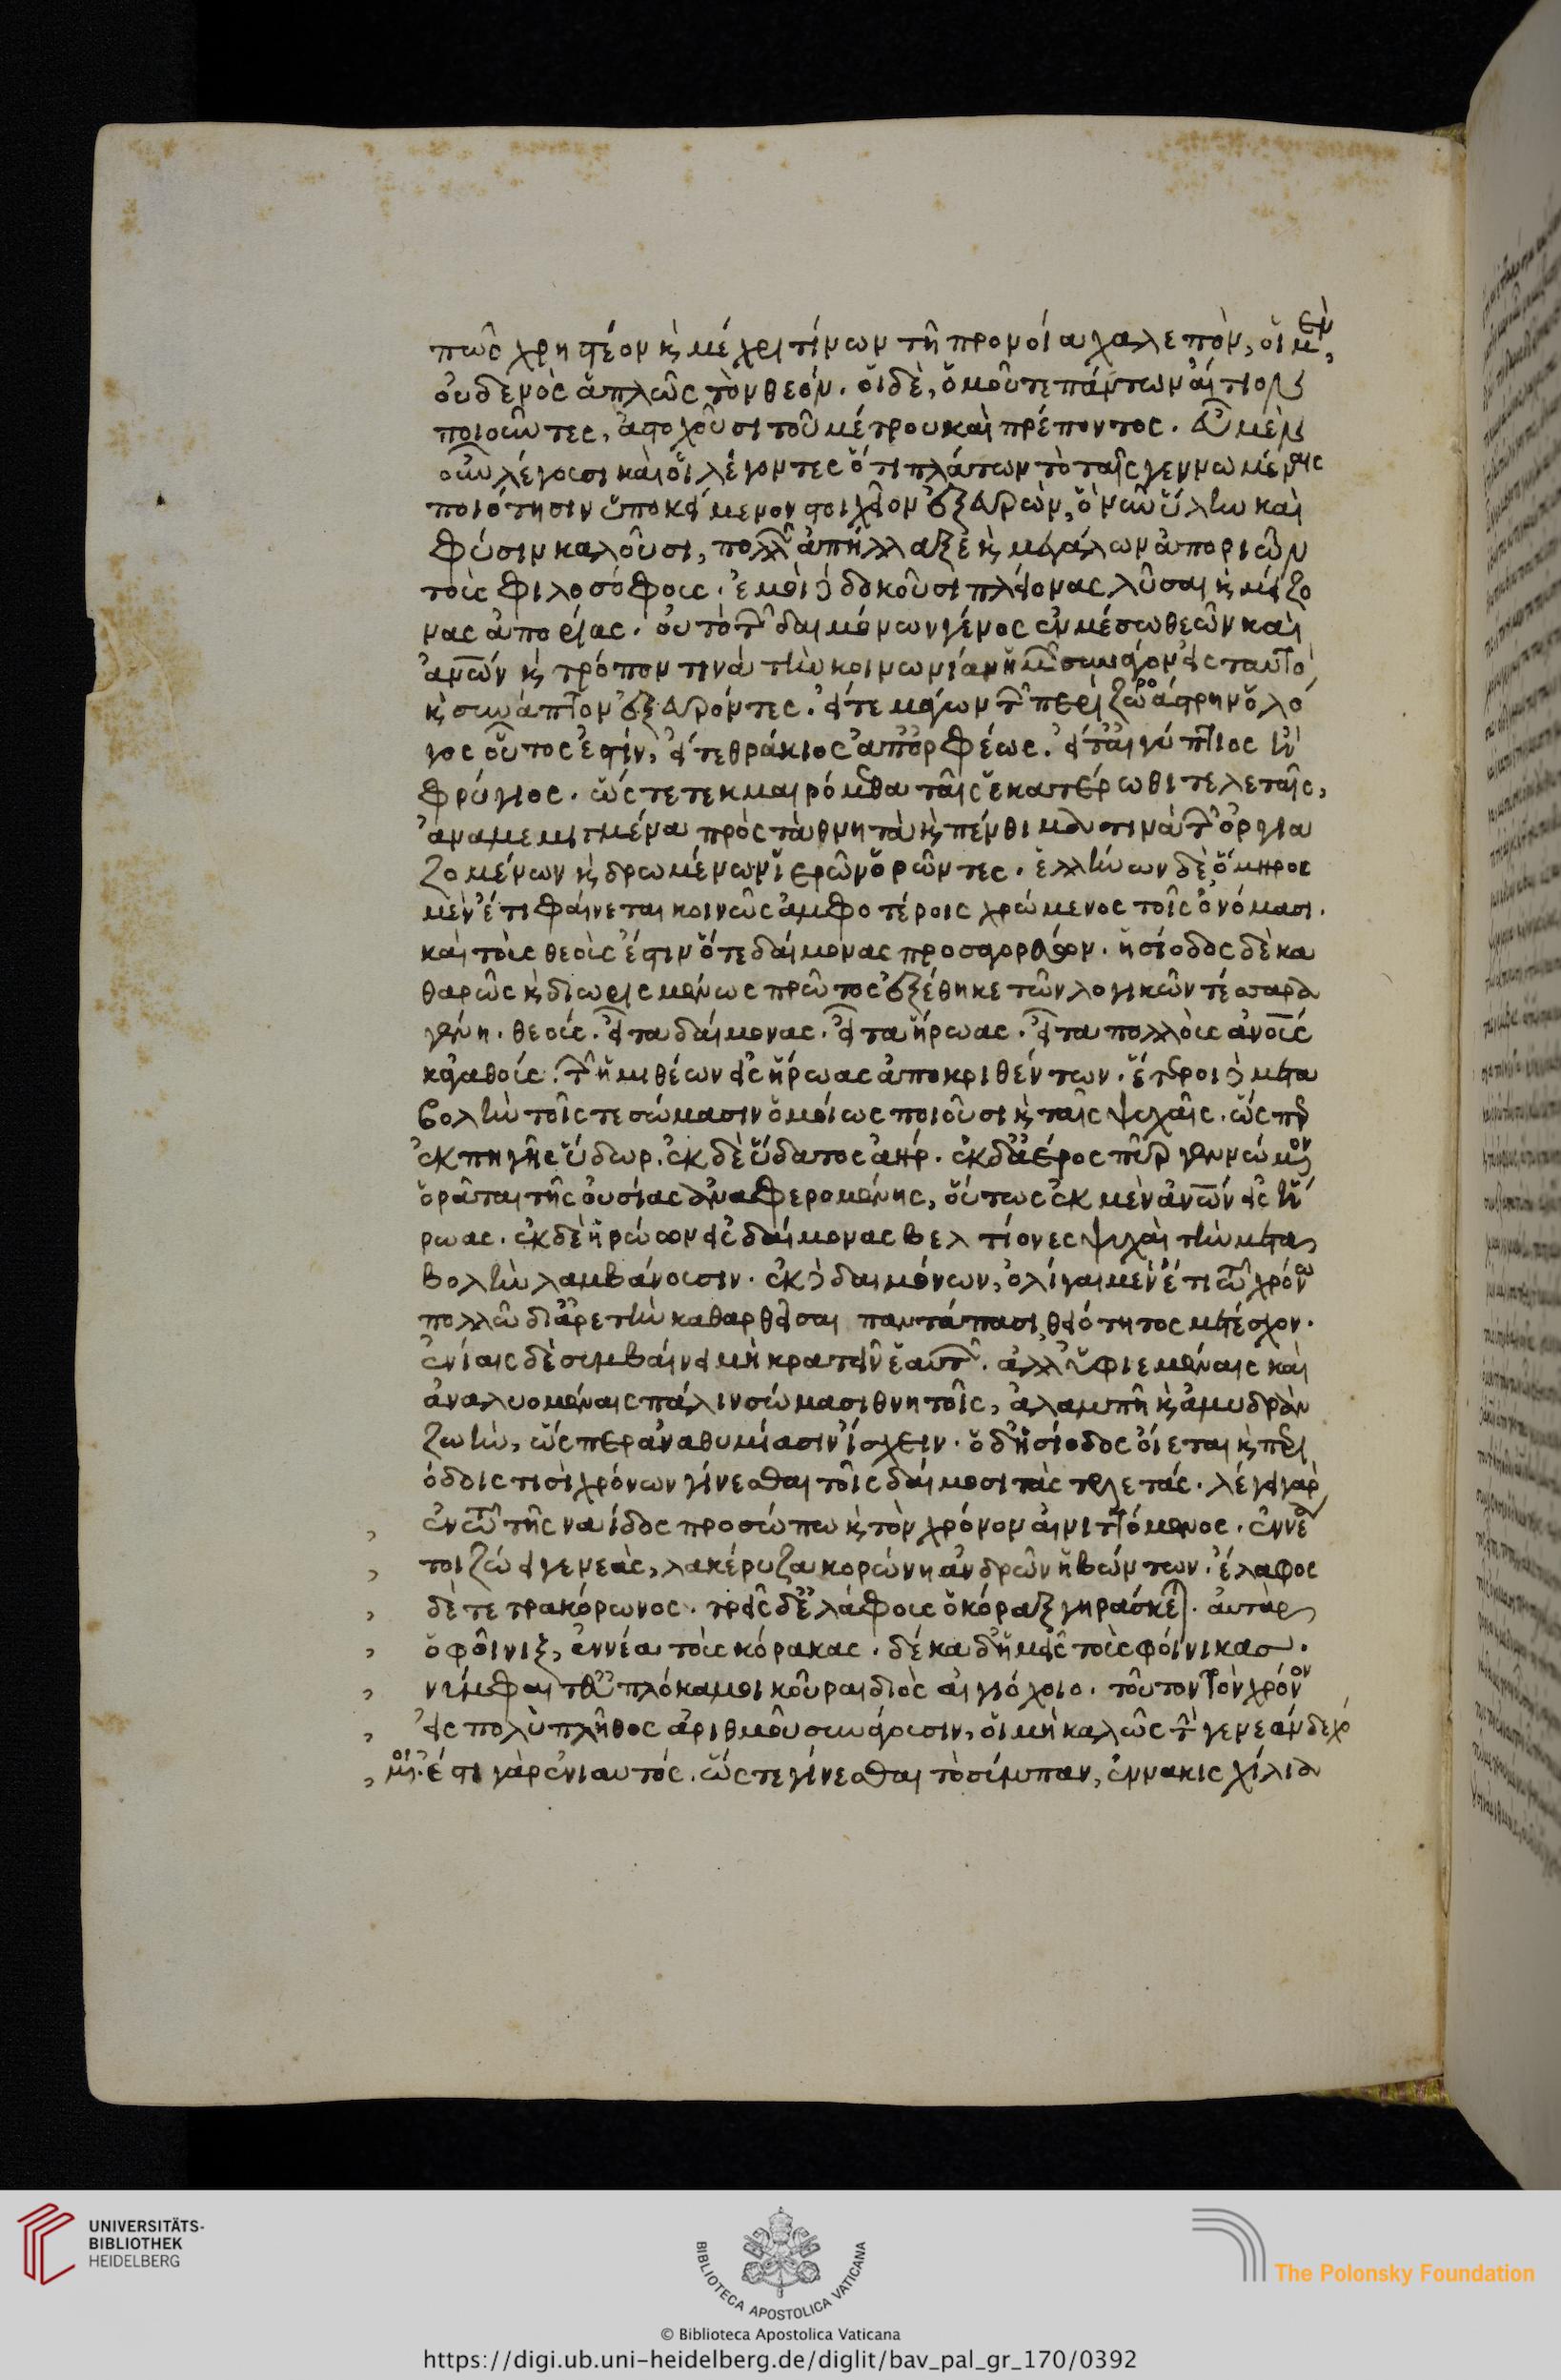 πῶς χρηστέον κ μέχρι τίνων τῆ προνοία χαλεπὸν, οἱ μὲν,
οὐδενὸς ἁπλῶς τὸν θεόν. οἱ δὲ, ὁμοῦτι πάντων αἴτιον
ποιοῦντες, ἀστοχοῦσι τοῦ μέτρου καὶ πρέποντος. εὖ μὲν
οὖν λέγουσι καὶ οἱ λέγοντες ὅτι πλάτων τὸ ταῖς γεννωμέναις
ποιότησιν ὑποκείμενον στοιχεῖον ἐξευρὼν, ὃ νῦν ὕλην καὶ
φύσιν καλοῦσι, πολλῶν ἀπήλλαξε κ μεγάλων ἀποριῶν
τοὺς φιλοσόφους. ἐμοὶ δὲ δοκοῦσι πλείονας λῦσαι κ μείζο
νας ἀπορίας. οἱ τὸ τῶν δαιμόνων γένος ἐν μέσω θεῶν καὶ
ἀνων κ τρόπον τινὰ τὴν κοινωνίαν ἡμῶν συνάγον εἰς ταυτὸ
κ συνάπτον ἐξευρόντες. εἴτε μάγων τῶν περὶ ζωροάστρην ὁ λό
γος οὗτος ἐστίν, εἴτε θράκιος ἀπ' ὀρφέως. εἴτ' αἰγύπτιος ἢ
φρύγιος. ὥς τε τεκμαιρόμεθα ταῖς ἑκατέρωθι τελεταῖς,
ἀναμεμιγμένα πρὸς τὰ θνητὰ κ πένθιμα τινὰ τῶν ὀργια
ζομένων κ δρωμένων ἱερῶν ὁρῶντες. ἑλλήνων δὲ ὅμηρος
μὲν ἔτι φαίνεται κοινῶς ἀμφοτέροις χρώμενος τοῖς ὀνόμασι.
καὶ τοὺς θεοὺς ἔστιν ὅτε δαίμονας προσαγορεύων. ἡσίοδος δὲ κα
θαρῶς κ διωρισμένως πρῶτος ἐξέθηκε τῶν λογικῶν τέσσαρα
γένη. θεούς. εἶτα δαίμονας. εἶτα ἥρωας. εἶτα πολλοὺς ἀνους
κἀγαθούς. τῶν ἡμιθέων εἰς ἥρωας ἀποκριθέντων. ἕτεροι δὲ μετα
βολὴν τοῖς τε σώμασιν ὁμοίως ποιοῦσι κ ταῖς ψυχαῖς. ὥσπερ
ἐκ πηγῆς ὕδωρ. ἐκ δὲ ὕδατος ἀὴρ. ἐκ δ' ἀέρος πῦρ γεννώμενον
ὁρᾶται τῆς οὐσίας ἀναφερομένης, οὕτως ἐκ μὲν ἀνων εἰς ἥ
ρωας. ἐκ δὲ ἡρώων εἰς δαίμονας βελτίονες ψυχαὶ τὴν μετα
βολὴν λαμβάνουσιν. ἐκ δὲ δαιμόνων, ὀλίγαι μὲν ἔτι τῶ χρόνω
πολλῶ δι' ἀρετὴν καθαρθεῖσαι παντάπασι θειότητος μετέσχον.
ἐνίαις δὲ συμβαίνει μὴ κρατεῖν ἑαυτῶν. ἀλλ' ὑφιεμέναις καὶ
ἀναλυομέναις πάλιν σώμασι θνητοῖς, ἀλαμπῆ κ ἀμυδρὰν
ζωὴν, ὥσπερ ἀναθυμίασιν ἴσχειν. ὁ δ' ἡσίοδος οἴεται κ περι
όδοις τισὶ χρόνων γίνεσθαι τοῖς δαίμοσι τὰς τελετάς. λέγει γὰρ
ἐν τῶ τῆς ναίδος προσώπω κ τὸν χρόνον αἰνιττόμενος. ἐννέα
τοι ζώει γενεὰς, λακέρυζα κορώνη ἀνδρῶν ἡβώντων. ἔλαφος
δέ τε τρακόρωνος. τρεῖς δ' ἐλάφους ὁ κόραξ γηράσκεται. αὐτὰρ
ὁ φοῖνιξ, ἐννέα τοὺς κόρακας. δέκα δ' ἡμεῖς τοὺς φοίνικας.
νύμφαι ἐυπλόκαμοι κοῦραι διὸς αἰγιόχοιο. τοῦτον τὸν χρόνον
εἰς πολὺ πλῆθος ἀριθμοῦ συνάγουσιν, οἱ μὴ καλῶς τὴν γενεὰν δεχό
μενοι. ἔστι γὰρ ἐνιαυτός. ὥς τε γίνεσθαι τὸ σύμπαν, ἐννακις χίλια
UNIVERSITÄTS-
BIBLIOTHEK
HEIDELBERG
BIBLIOTECA APOSTOLICA VATICANA
The Polonsky Foundation
© Biblioteca Apostolica Vaticana
https://digi.ub.uni-heidelberg.de/diglit/bav_pal_gr_170/0392